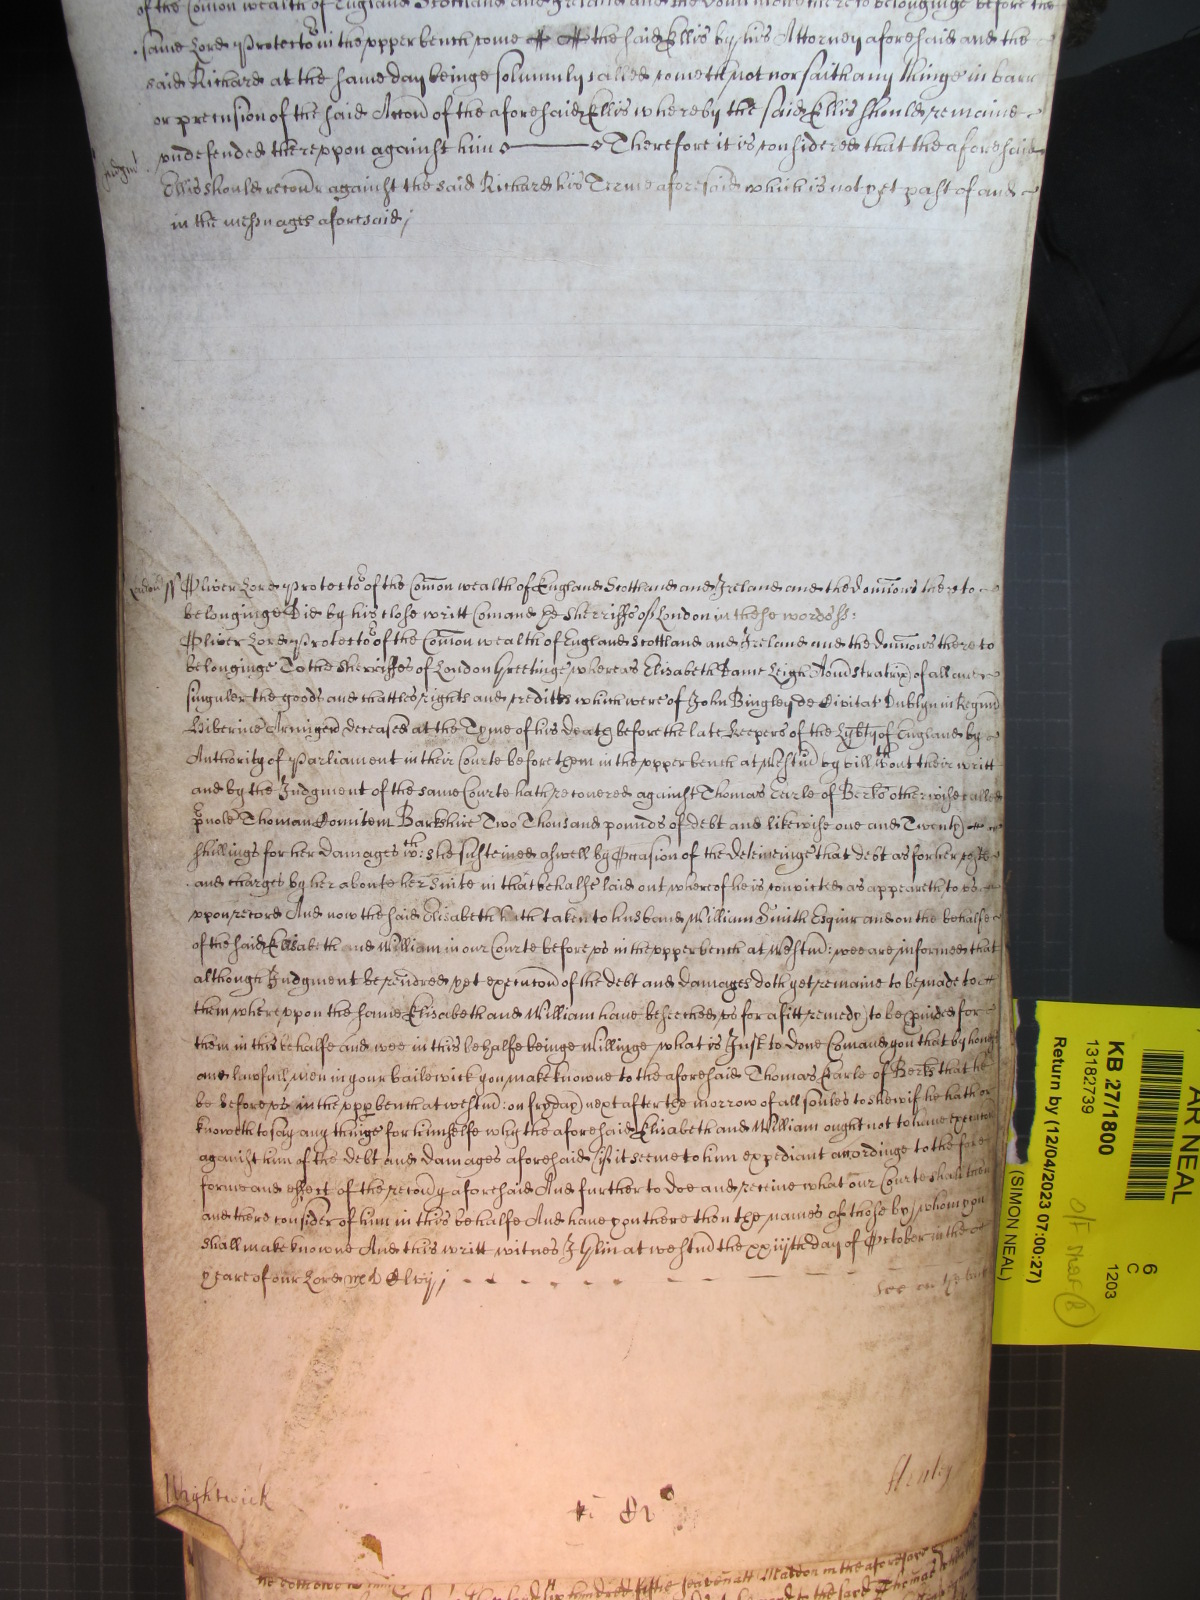 of the Comon wealth of England Scotland and Ireland and the Dominions thereto belonginge before the
same Lord Protector in the vpper bench come the said Ellis by his Attorney aforesaid and the
said Richard at the same day beinge solemnly called cometh not nor saith any thinge in barr
or preclusion of the said Accon of the aforesaid Ellis whereby the said Ellis should remaine
vndefended therevpon against him Therefore it is considered that the aforesaid
Judgmt
Ellis should recover against the said Richard his Terme aforesaid which is not yet past of and
in the messuages aforesaid
London ss Oliver Lord Protector of the Comon wealth of England Scotland and Ireland and the Dominions thereto
belonginge Did by his close writt Comand the Sherriffs of London in these words ss:
Oliver Lord Protector of the Comon wealth of England Scottland and Ireland and the Dominions there to
belonginge To the Sherriffes of London Greetinge whereas Elisabeth Dame Leigh Administratrix of all and
singuler the goods and chattles rights and creditts which were of John Bingley de Civitat Dublyn in Regno
Hibernie Armigero deceased at the Tyme of his death before the late keepers of the Lybty of England by
Authority of Parliament in their Courte before them in the vpper bench at Westm by bill wthout their writt
and by the Judgment of the same Courte hath recovered against Thomas Earle of Berks otherwise called
pnole Thomam Comitem Barkshire Two Thousand pounds of debt and likewise one and Twenty
shillings for her damages wch she susteined aswell by Occasion of the deteineinge that debt as for her costs
and charges by her aboute her suite in that behalfe laid out whereof he is convicted as appeareth to vs
vpon record And now the said Elisabeth hath taken to husband William Smith Esquir and on the behalfe
of the said Elisabeth and William in our Courte before vs in the vpper bench at Westm: wee are informed that
although Judgment be rendred yet execucon of the debt and damages doth yet remaine to be made to
them where vpon the same Elisabeth and William have beseeched vs for a fitt remedy to be pvided for
them in this behalfe and wee in this behalfe beinge willinge what is Just to done Comand you that by honest
and lawfull men in your bailewick you make knowne to the aforesaid Thomas Earle of Berks that he
be before vs in the vpper bench at westm: on fryday next after the morrow of all soules to shew if he hath or
knoweth to say any thinge for himselfe why the aforesaid Elisabeth and William ought not to have execucon
against him of the debt and damages aforesaid if it seeme to him expediant accordinge to the force
forme and effect of the recovy aforesaid And further to doe and receive what our Courte shall then
and there consider of him in this behalfe And have you there then the names of those by whom you
shall make knowne And this writt witnes J Glin at westm the xxiijth day of October in the
yeare of our Lord mdclvij
see on ye back
Wightwick
Henley
he bethene
hundred fiftie seaven att Maldon in the aforesaid
to the said Thomas
AR NEAL
6
C
1203
KB 27/1800
13182739
Return by (12/04/2023 07:00:27)
(SIMON NEAL)